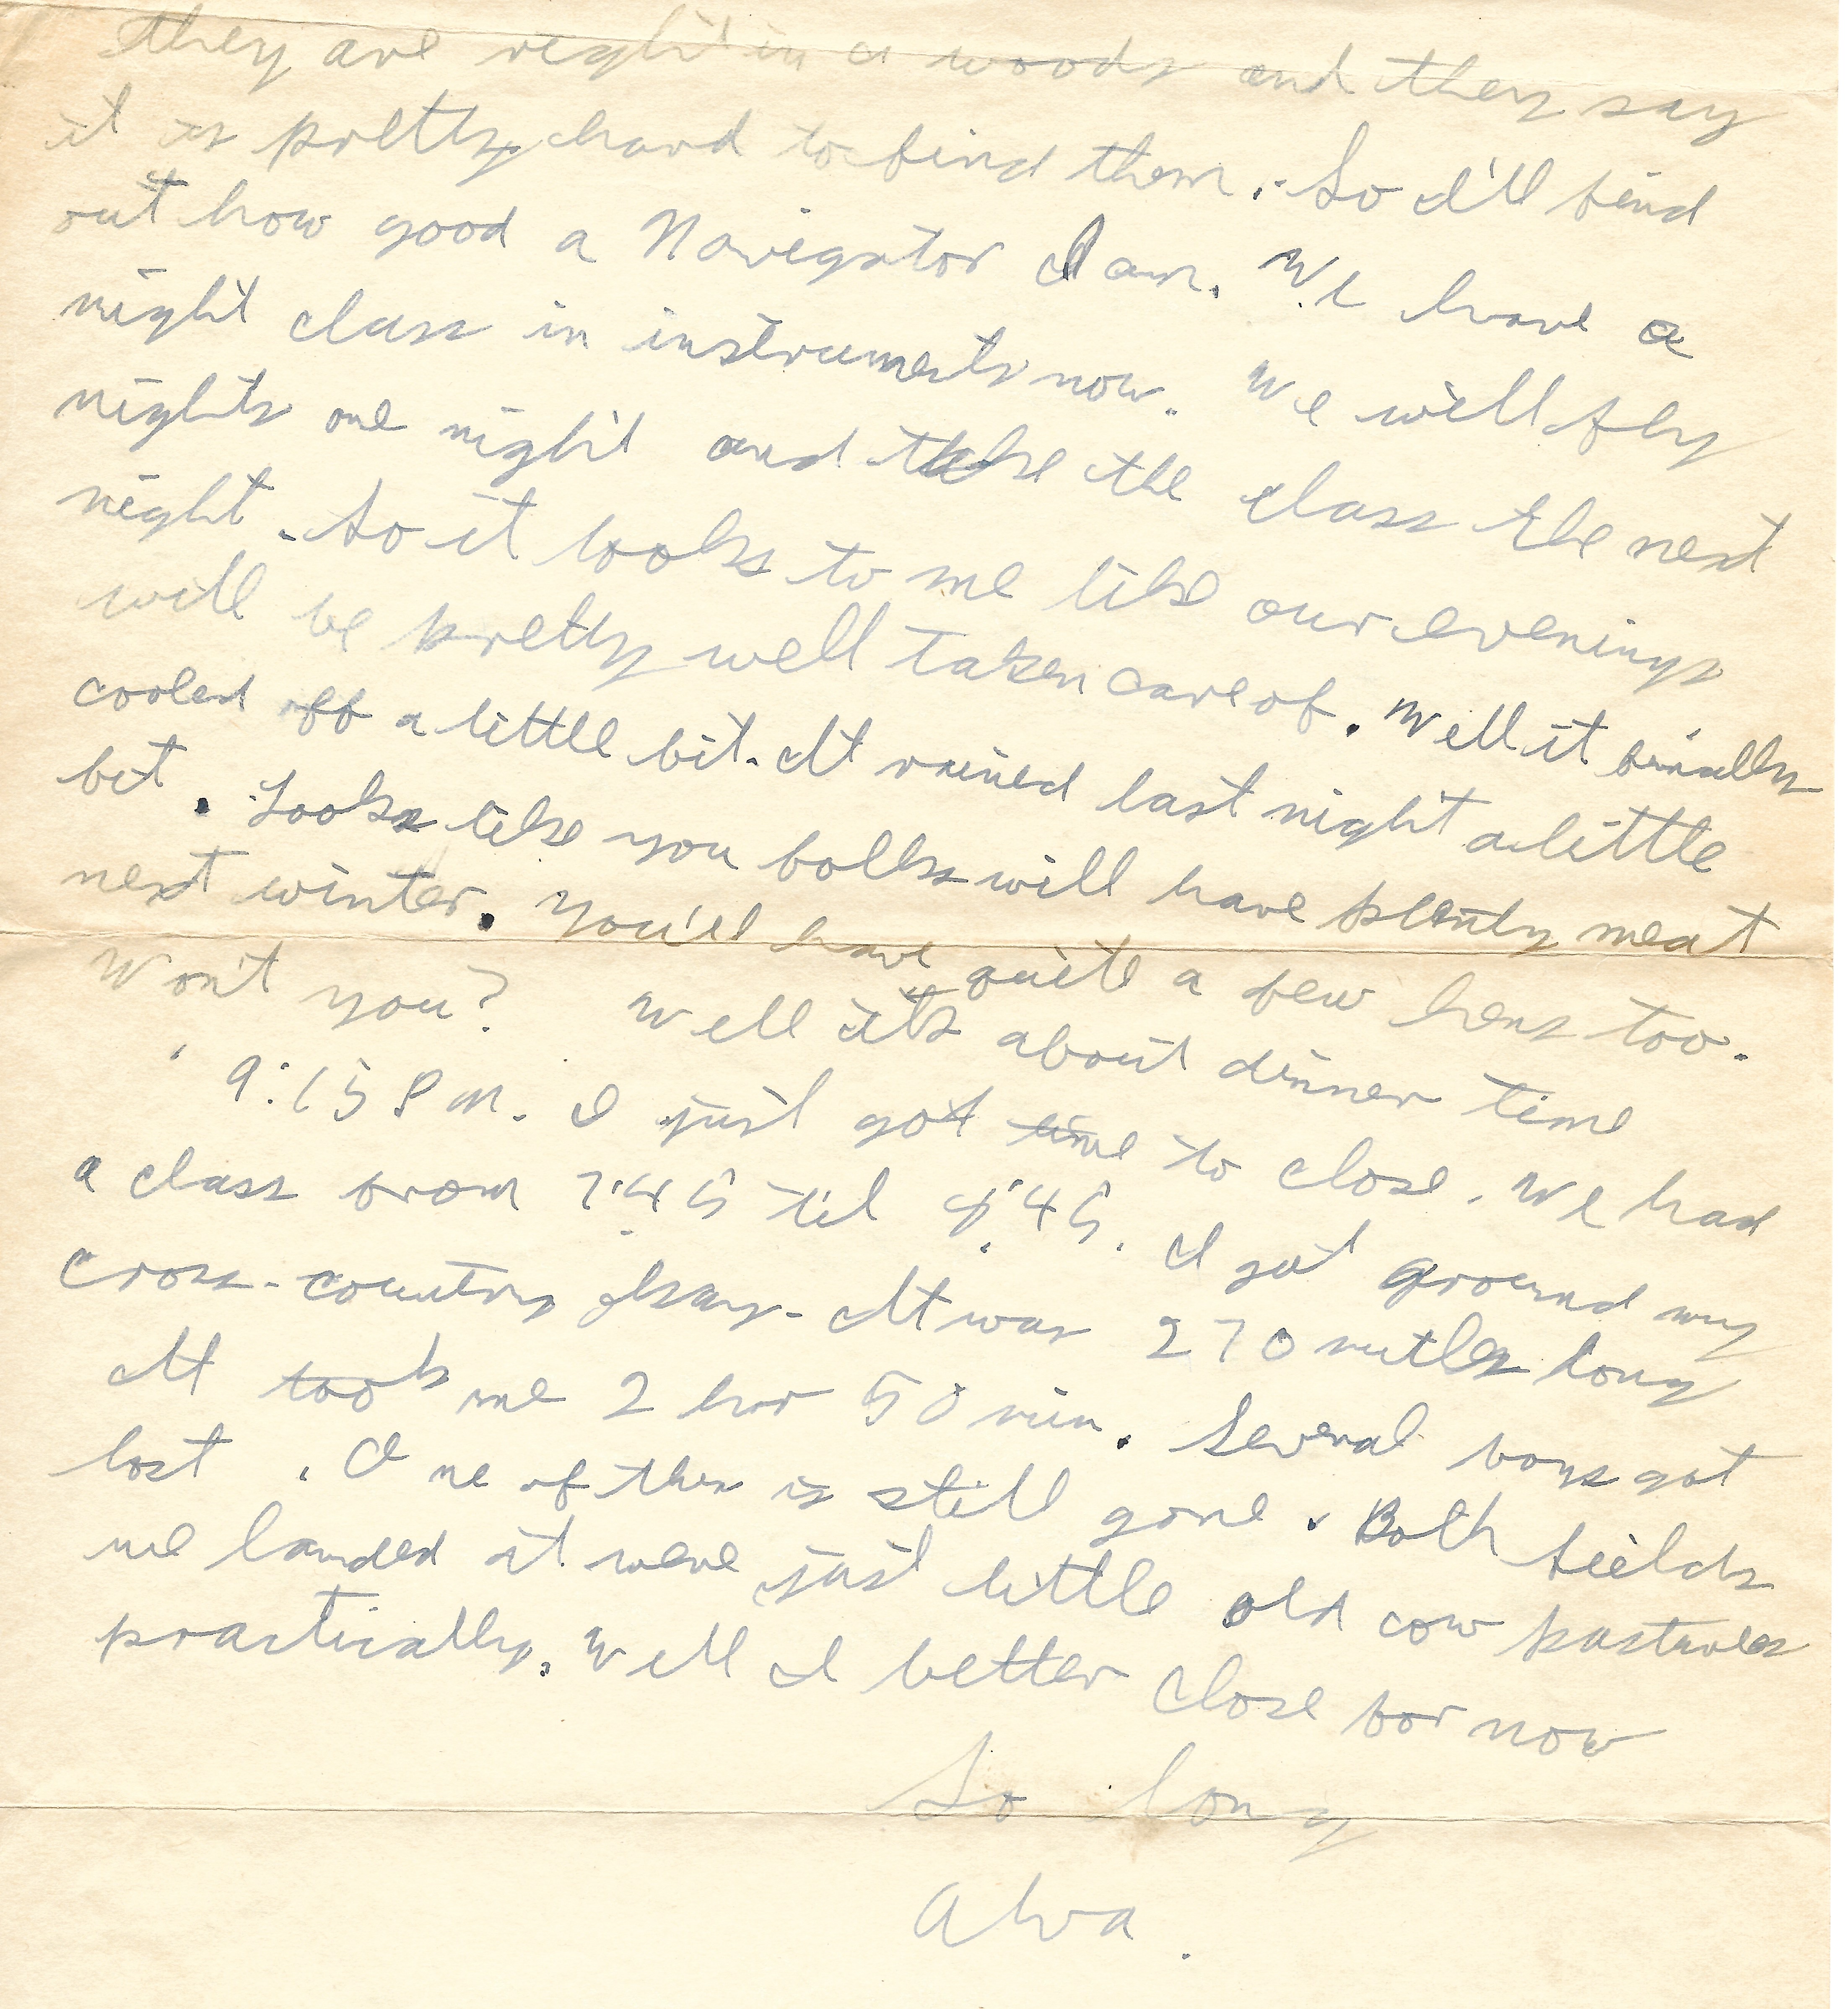 they are right in a woods and they say
it is pretty hard to find them. So I'll find
out how good a Navigator I am. We have a
night class in instruments now. We will fly
nights one night and take the class the next
night. So it looks to me like our evenings
will be pretty well taken care of. Well it finally
cooled off a little bit. It rained last night a little
bit. Looks like you folks will have plenty meat
next winter. You'll have quite a few hens too.
Won't you? Well it's about dinner time
9:15 P.M. I just got time to close. We had
a class from 7:45 til 8:45. I got around my
cross-country okay. It was 270 miles long
It took me 2 hr 50 min. Several boys got
lost. One of them is still gone. Both fields
we landed at were just little old cow pastures
practically. Well I better close for now
So long
Alva.